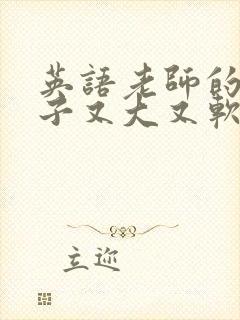 英語老師的
子又大又軟
立迩